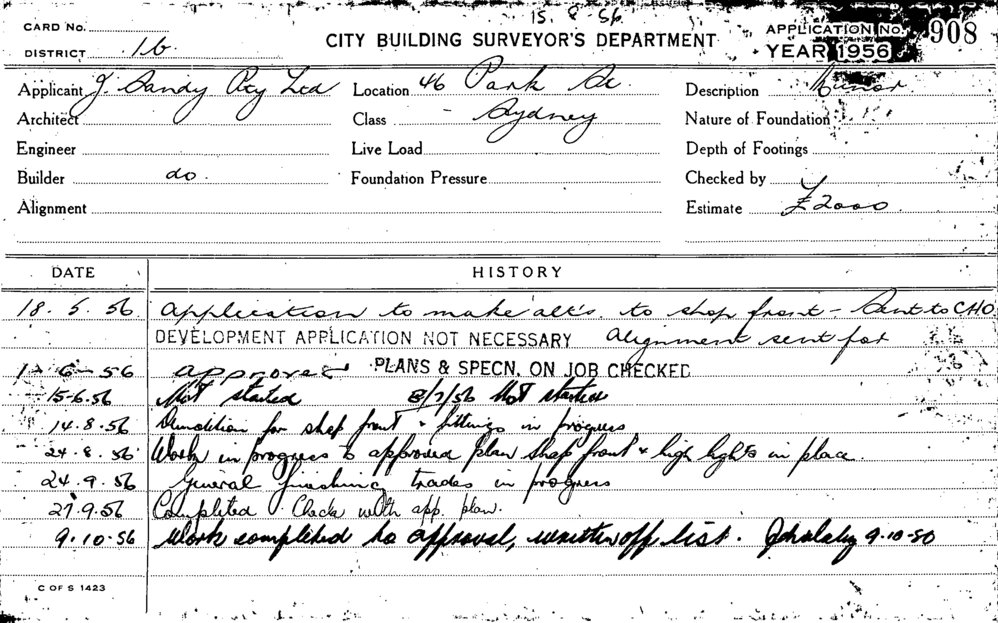 15. 8 56
CARD No.
CITY BUILDING SURVEYOR'S DEPARTMENT
APPLICATION No. 908
DISTRICT 16
YEAR 1956
Applicant J. Sandy Pty Ltd Location 46 Park St. Description Minor
Architect Class Sydney Nature of Foundation
Engineer Live Load Depth of Footings
Builder do. Foundation Pressure Checked by
Alignment Estimate £2000
DATE HISTORY
18. 5. 56 Application to make alt's. to shop front - Sent to CHO
DEVELOPMENT APPLICATION NOT NECESSARY Alignment sent for
6-56 approved PLANS & SPECN. ON JOB CHECKED
15-6.56 Not started 3/7/56 Not started
14.8.56 Demolition for shop front & fittings in progress
24.8.56 Work in progress to approved plan shop front & high lights in place.
24.9.56 General finishing trades in progress
27.9.56 Completed Check with app. plan.
9.10.56 Work completed to approval, written off list. 9-10-50
C OF S 1423